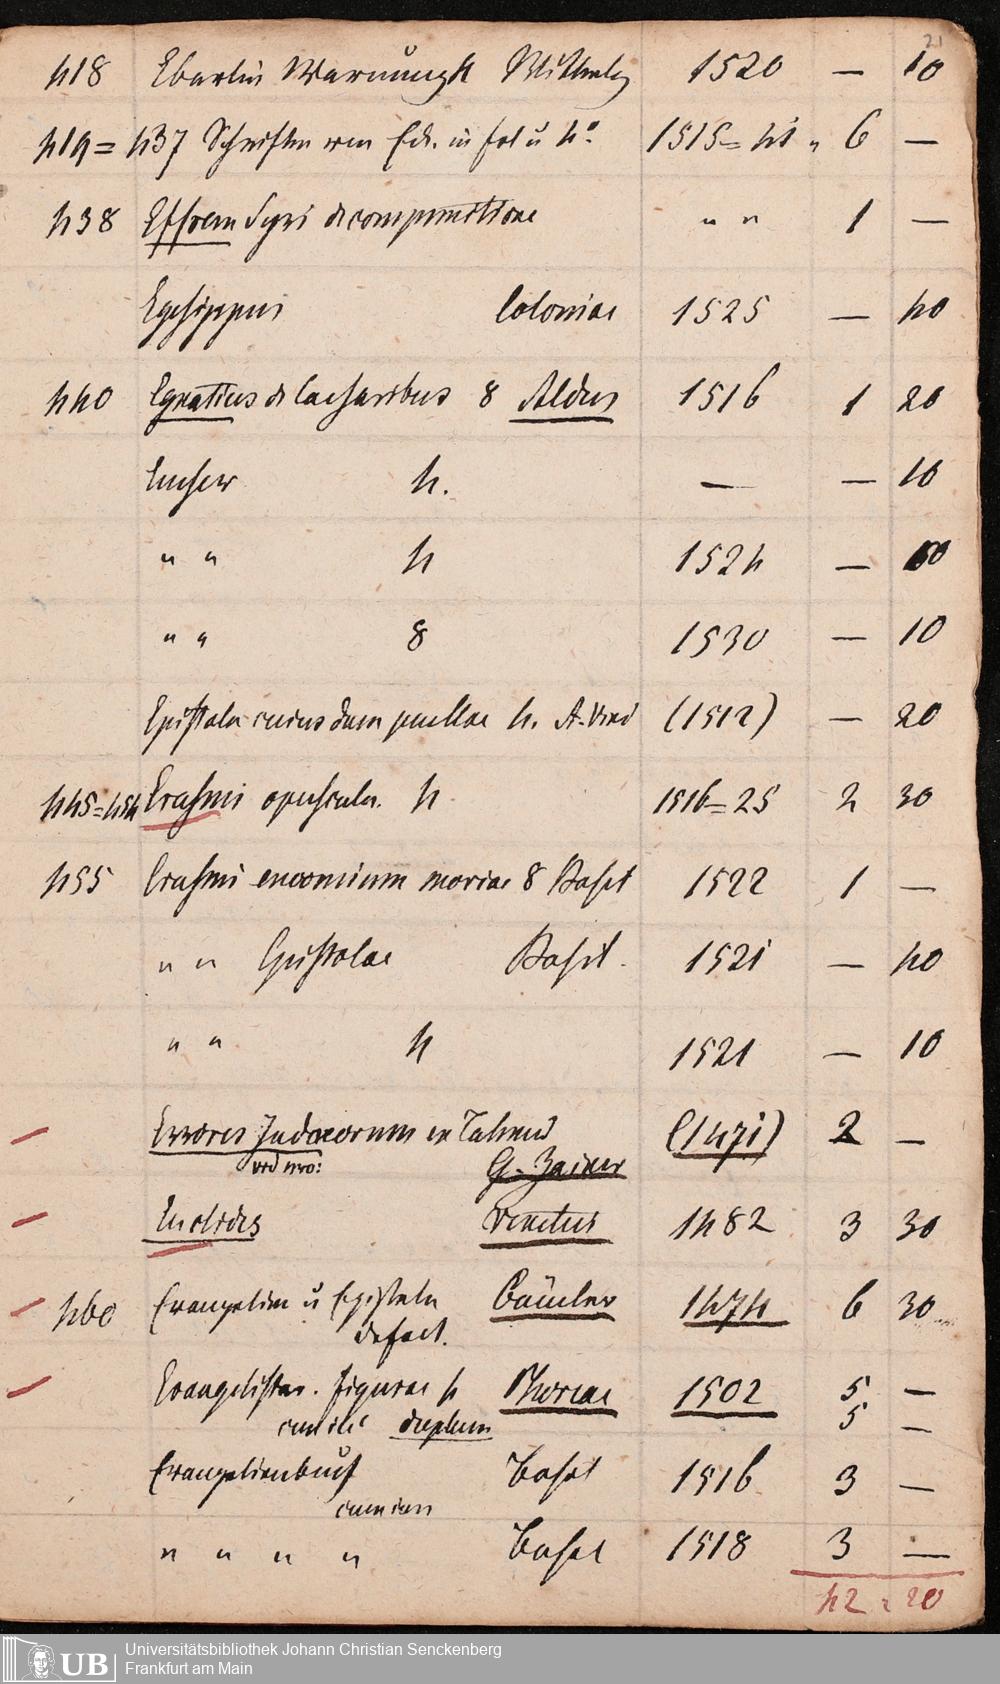 21
418 Eberlin Warnung 4 Wittenbg 1520 — 10
419 = 437 Schriften von Eck. in fol u 4° 1515 = 41 " 6 —
438 Effrem Syri de compunctione " " 1 —
Egesippus Coloniae 1525 — 40
440 Egnatius de Caesaribus 8 Aldus 1516 1 20
Emser 4. — — 10
" " 4 1524 — 10
" " 8 1530 — 10
Epistola cuiusdam puellae 4. (1512) — 20
445=454 Erasmi opuscula. 4 1516=25 2 30
455 Erasmi encomium moriae 8 Basel 1522 1 —
" " Epistolae Basel. 1521 — 40
" " 4 1521 — 10
Errores Judaeorum ex Talmud (1471) 2 —
G. Zainer
Euclides Venetiis 1482 3 30
460 Evangelien u Episteln Bämler 1474 6 30
defect.
Evangelistar. figurae 4 Phorcae 1502 5 —
duplum 5 —
Evangelienbuch Basel 1516 3 —
" " " " Basel 1518 3 —
42 = 20
UB Universitätsbibliothek Johann Christian Senckenberg
Frankfurt am Main